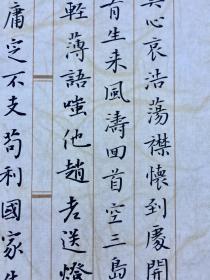 心哀浩蕩襟懷到處開
有生来風濤回首空三島
輕薄語嗤他趙老送燈
庸定不支苟利國家生